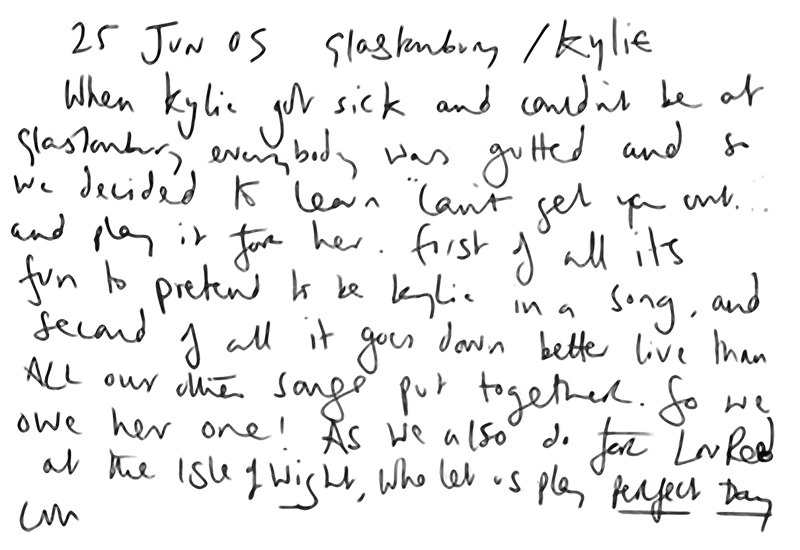 25 JUN 05 Glastonbury / Kylie
When Kylie got sick and couldn't be at
Glastonbury everybody was gutted and so
we decided to learn "Can't get you out...
and play it for her. First of all its
fun to pretend to be kylie in a song, and
second of all it goes down better live than
ALL our other songs put together. So we
owe her one! As we also do for Lou Reed
at the Isle of Wight, who let us play Perfect Day